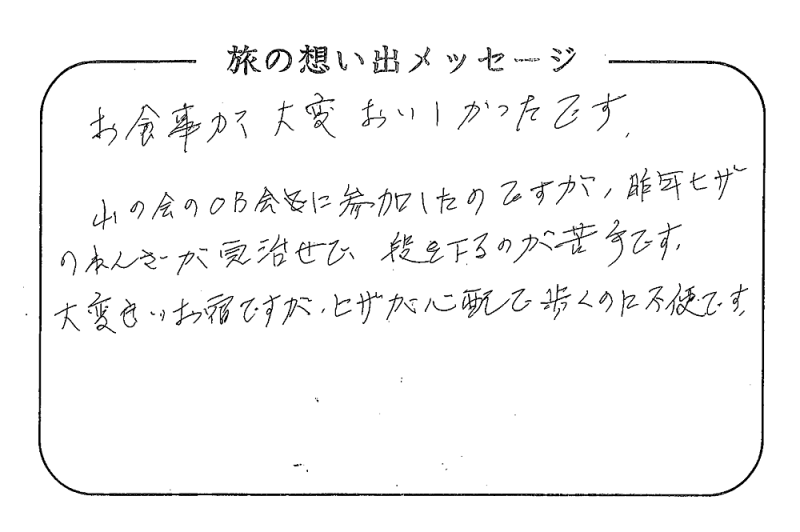 旅の想い出メッセージ
お食事が大変おいしかったです。
山の会のOB会に参加したのですが、昨年ヒザ
のねんざが完治せず、段を下るのが苦手です。
大変きいお宿ですが、ヒザが心配で歩くのに不便です。